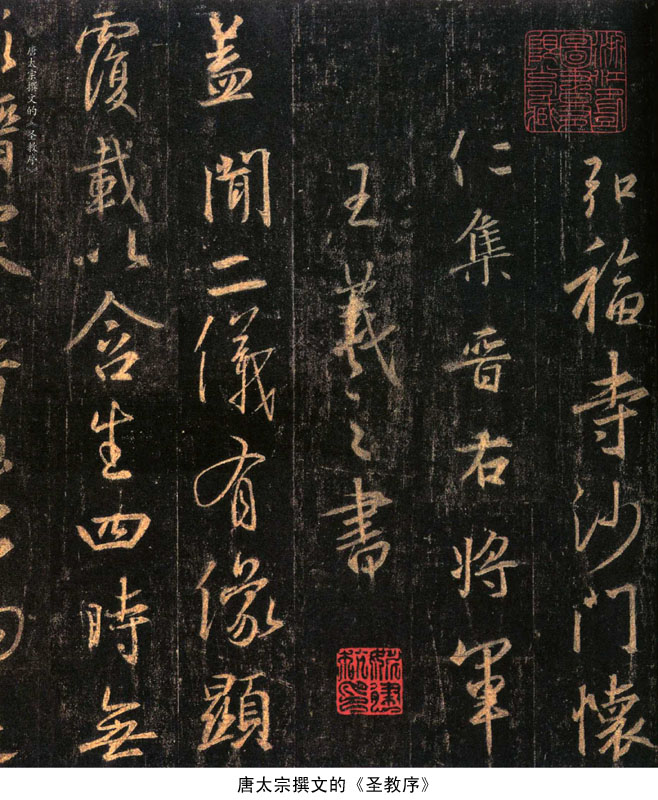 弘福寺沙门懐
仁集晋右将軍
王羲之書
蓋聞二儀有像顯
覆載以含生四時無
唐太宗撰文的《圣教序》
唐太宗撰文的《圣教序》